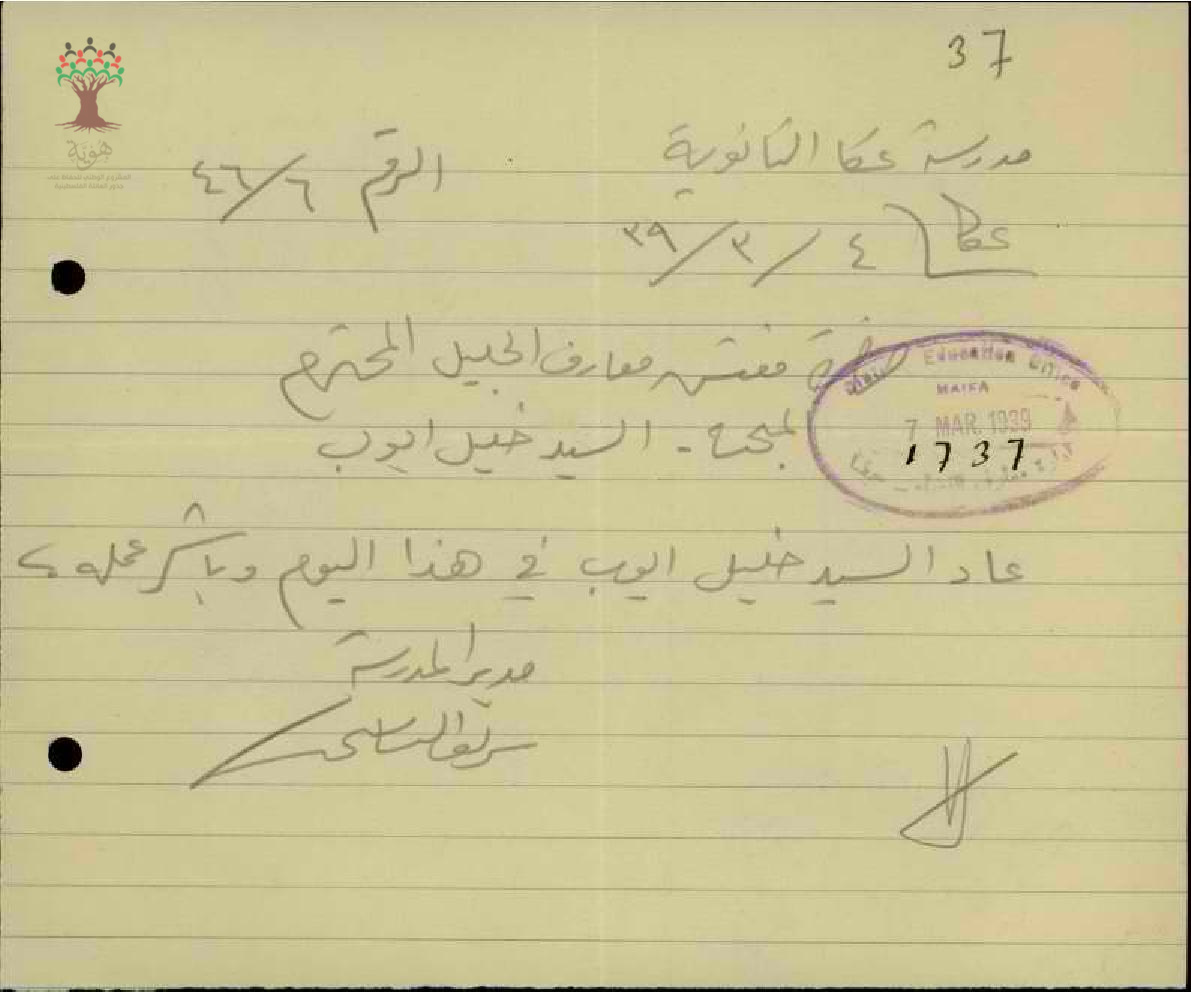 37
مدرسة عكا الثانوية
الرقم ٦/٤٦
عكا ٤/٣/٣٩
حضرة مفتش معارف الجليل المحترم
المبحث - السيد خليل ايوب
District Education Office
HAIFA
7 MAR. 1939
1737
عاد السيد خليل ايوب في هذا اليوم وباشر عمله
مدير المدرسة
هوية